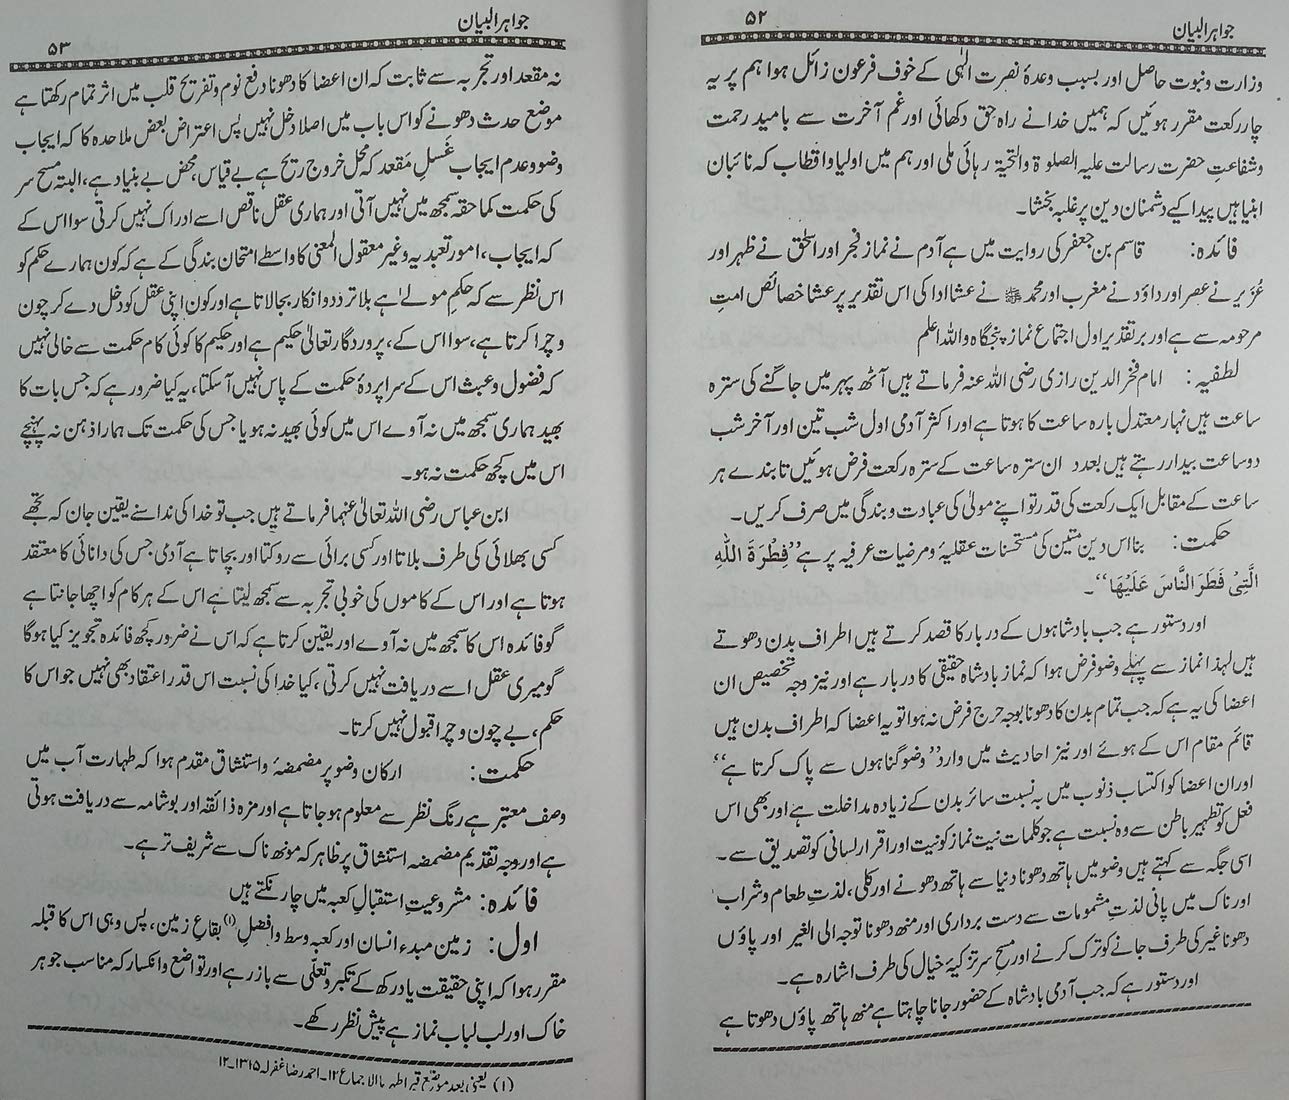 جواہر البیان
۵۲
وزارت و نبوت حاصل اور بسبب وعدۂ نصرت الٰہی کے خوف فرعون زائل ہوا ہم پر یہ
چار رکعت مقرر ہوئیں کہ ہمیں خدا نے راہ حق دکھائی اور غم آخرت سے بامید رحمت
و شفاعتِ حضرت رسالت علیہ الصلوۃ والتحیۃ رہائی ملی اور ہم میں اولیا و اقطاب کہ نائبان
انبیا ہیں پیدا کیے دشمنان دین پر غلبہ بخشا۔
فائدہ: قاسم بن جعفر کی روایت میں ہے آدم نے نماز فجر اور اسحٰق نے ظہر اور
عُزَیر نے عصر اور داؤد نے مغرب اور محمد ﷺ نے عشا ادا کی اس تقدیر پر عشا خصائص امتِ
مرحومہ سے ہے اور بر تقدیر اول اجتماع نماز پنجگاہ واللہ اعلم
لطفیہ: امام فخر الدین رازی رضی اللہ عنہ فرماتے ہیں آٹھ پہر میں جاگنے کی سترہ
ساعت ہیں نہار معتدل بارہ ساعت کا ہوتا ہے اور اکثر آدمی اول شب تین اور آخر شب
دو ساعت بیدار رہتے ہیں بعدد ان سترہ ساعت کے سترہ رکعت فرض ہوئیں تا بندے ہر
ساعت کے مقابل ایک رکعت کی قدر تو اپنے مولیٰ کی عبادت و بندگی میں صرف کریں۔
حکمت: بنا اس دین متین کی مستحسنات عقلیہ و مرضیات عرفیہ پر ہے ’’فِطْرَةَ اللّٰهِ
الَّتِیْ فَطَرَ النَّاسَ عَلَیْهَا‘‘۔
اور دستور ہے جب بادشاہوں کے دربار کا قصد کرتے ہیں اطراف بدن دھوتے
ہیں لہذا نماز سے پہلے وضو فرض ہوا کہ نماز بادشاہ حقیقی کا دربار ہے اور نیز وجہ تخصیص ان
اعضا کی یہ ہے کہ جب تمام بدن کا دھونا بوجہ حرج فرض نہ ہوا تو یہ اعضا کہ اطراف بدن ہیں
قائم مقام اس کے ہوئے اور نیز احادیث میں وارد ’’وضو گناہوں سے پاک کرتا ہے‘‘
اور ان اعضا کو اکتساب ذنوب میں بہ نسبت سائر بدن کے زیادہ مداخلت ہے اور بھی اس
فعل کو تطہیر باطن سے وہ نسبت ہے جو کلمات نیت نماز کو نیت اور اقرار لسانی کو تصدیق سے۔
اسی جگہ سے کہتے ہیں وضو میں ہاتھ دھونا دنیا سے ہاتھ دھونے اور کلی، لذتِ طعام و شراب
اور ناک میں پانی لذتِ مشمومات سے دست برداری اور منھ دھونا توجہ الی الغیر اور پاؤں
دھونا غیر کی طرف جانے کو ترک کرنے اور مسح سر تزکیۂ خیال کی طرف اشارہ ہے۔
اور دستور ہے کہ جب آدمی بادشاہ کے حضور جانا چاہتا ہے منھ ہاتھ پاؤں دھوتا ہے
جواہر البیان
۵۳
نہ مقعد اور تجربہ سے ثابت کہ ان اعضا کا دھونا دفع نوم و تفریح قلب میں اثر تمام رکھتا ہے
موضع حدث دھونے کو اس باب میں اصلا دخل نہیں پس اعتراض بعض ملاحدہ کا کہ ایجاب
وضو و عدم ایجاب غَسلِ مَقعد کہ محل خروج ریح ہے بے قیاس، محض بے بنیاد ہے، البتہ مسح سر
کی حکمت کما حقہ سمجھ میں نہیں آتی اور ہماری عقل ناقص اسے ادراک نہیں کرتی سوا اس کے
کہ ایجاب، امور تعبدیہ و غیر معقول المعنی کا واسطے امتحان بندگی کے ہے کہ کون ہمارے حکم کو
اس نظر سے کہ حکمِ مولےٰ ہے بلا تردد و انکار بجا لاتا ہے اور کون اپنی عقل کو دخل دے کر چون
و چرا کرتا ہے، سوا اس کے، پروردگار تعالیٰ حکیم ہے اور حکیم کا کوئی کام حکمت سے خالی نہیں
کہ فضول و عبث اس کے سراپردۂ حکمت کے پاس نہیں آ سکتا، یہ کیا ضرور ہے کہ جس بات کا
بھید ہماری سمجھ میں نہ آوے اس میں کوئی بھید نہ ہو یا جس کی حکمت تک ہمارا ذہن نہ پہنچے
اس میں کچھ حکمت نہ ہو۔
ابن عباس رضی اللہ تعالیٰ عنہما فرماتے ہیں جب تو خدا کی ندا سنے یقین جان کہ تجھے
کسی بھلائی کی طرف بلاتا اور کسی برائی سے روکتا اور بچاتا ہے آدمی جس کی دانائی کا معتقد
ہوتا ہے اور اس کے کاموں کی خوبی تجربہ سے سمجھ لیتا ہے اس کے ہر کام کو اچھا جانتا ہے
گو فائدہ اس کا سمجھ میں نہ آوے اور یقین کرتا ہے کہ اس نے ضرور کچھ فائدہ تجویز کیا ہوگا
گو میری عقل اسے دریافت نہیں کرتی، کیا خدا کی نسبت اس قدر اعتقاد بھی نہیں جو اس کا
حکم، بے چون و چرا قبول نہیں کرتا۔
حکمت: ارکان وضو پر مضمضۂ و استنشاق مقدم ہوا کہ طہارت آب میں
وصف معتبر ہے رنگ نظر سے معلوم ہو جاتا ہے اور مزہ ذائقہ اور بو شامہ سے دریافت ہوتی
ہے اور وجہ تقدیم مضمضہ استنشاق پر ظاہر کہ مونھ ناک سے شریف تر ہے۔
فائدہ: مشروعیتِ استقبالِ کعبہ میں چار نکتے ہیں
اول: زمین مبدء انسان اور کعبہ وسط و افضل (۱) بقاعِ زمین، پس وہی اس کا قبلہ
مقرر ہوا کہ اپنی حقیقت یاد رکھ کے تکبر و تعلّی سے باز رہے اور تواضع و انکسار کہ مناسب جوہر
خاک اور لب لباب نماز ہے پیش نظر رکھے۔
(۱) یعنی بعد موضع قبر اطہر بالاجماع ۱۲۔ احمد رضا غفرلہ ۱۳۱۵۔۱۲